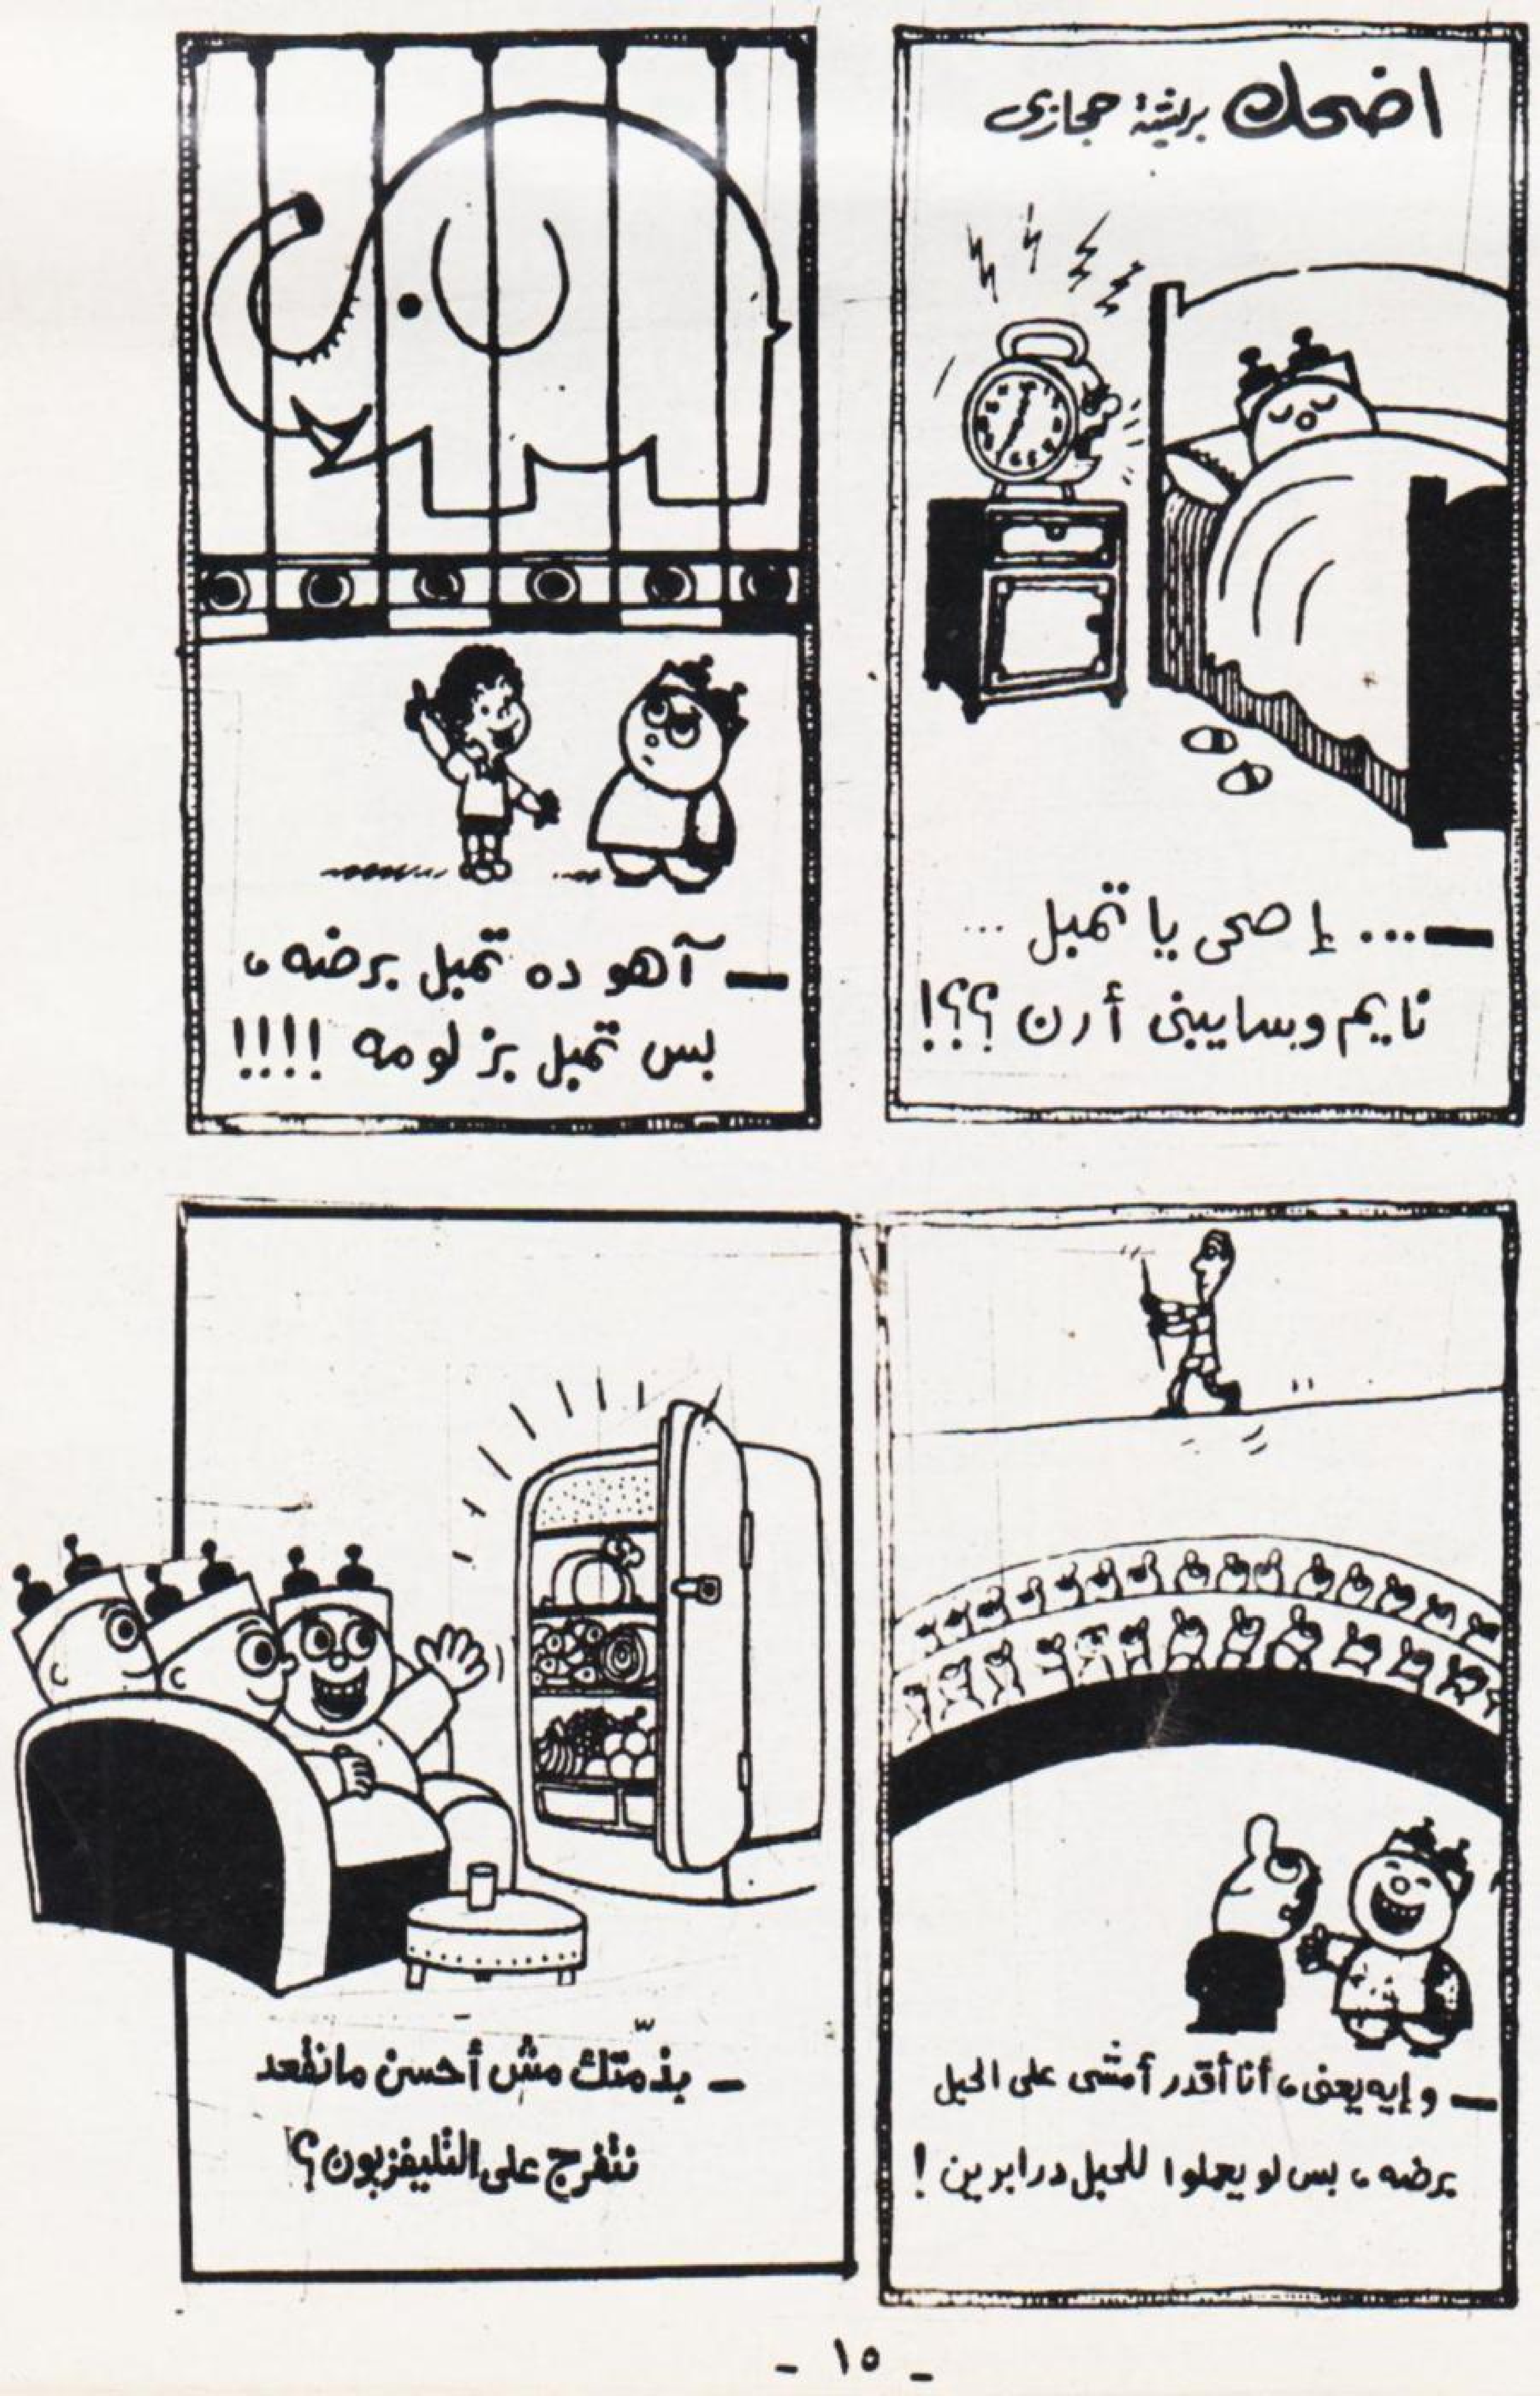 اضحك بريشة حجازى
— ... إصحى يا تمبل ...
نايم وسايبنى أرن ؟؟!
— آهو ده تمبل برضه ،
بس تمبل بزلومه !!!!
— وإيه يعنى ، أنا أقدر أمشى على الحبل
برضه ، بس لو يعملوا للحبل درابزين !
— بذمّتك مش أحسن مانقعد
نتفرج على التليفزيون ؟
- ١٥ -